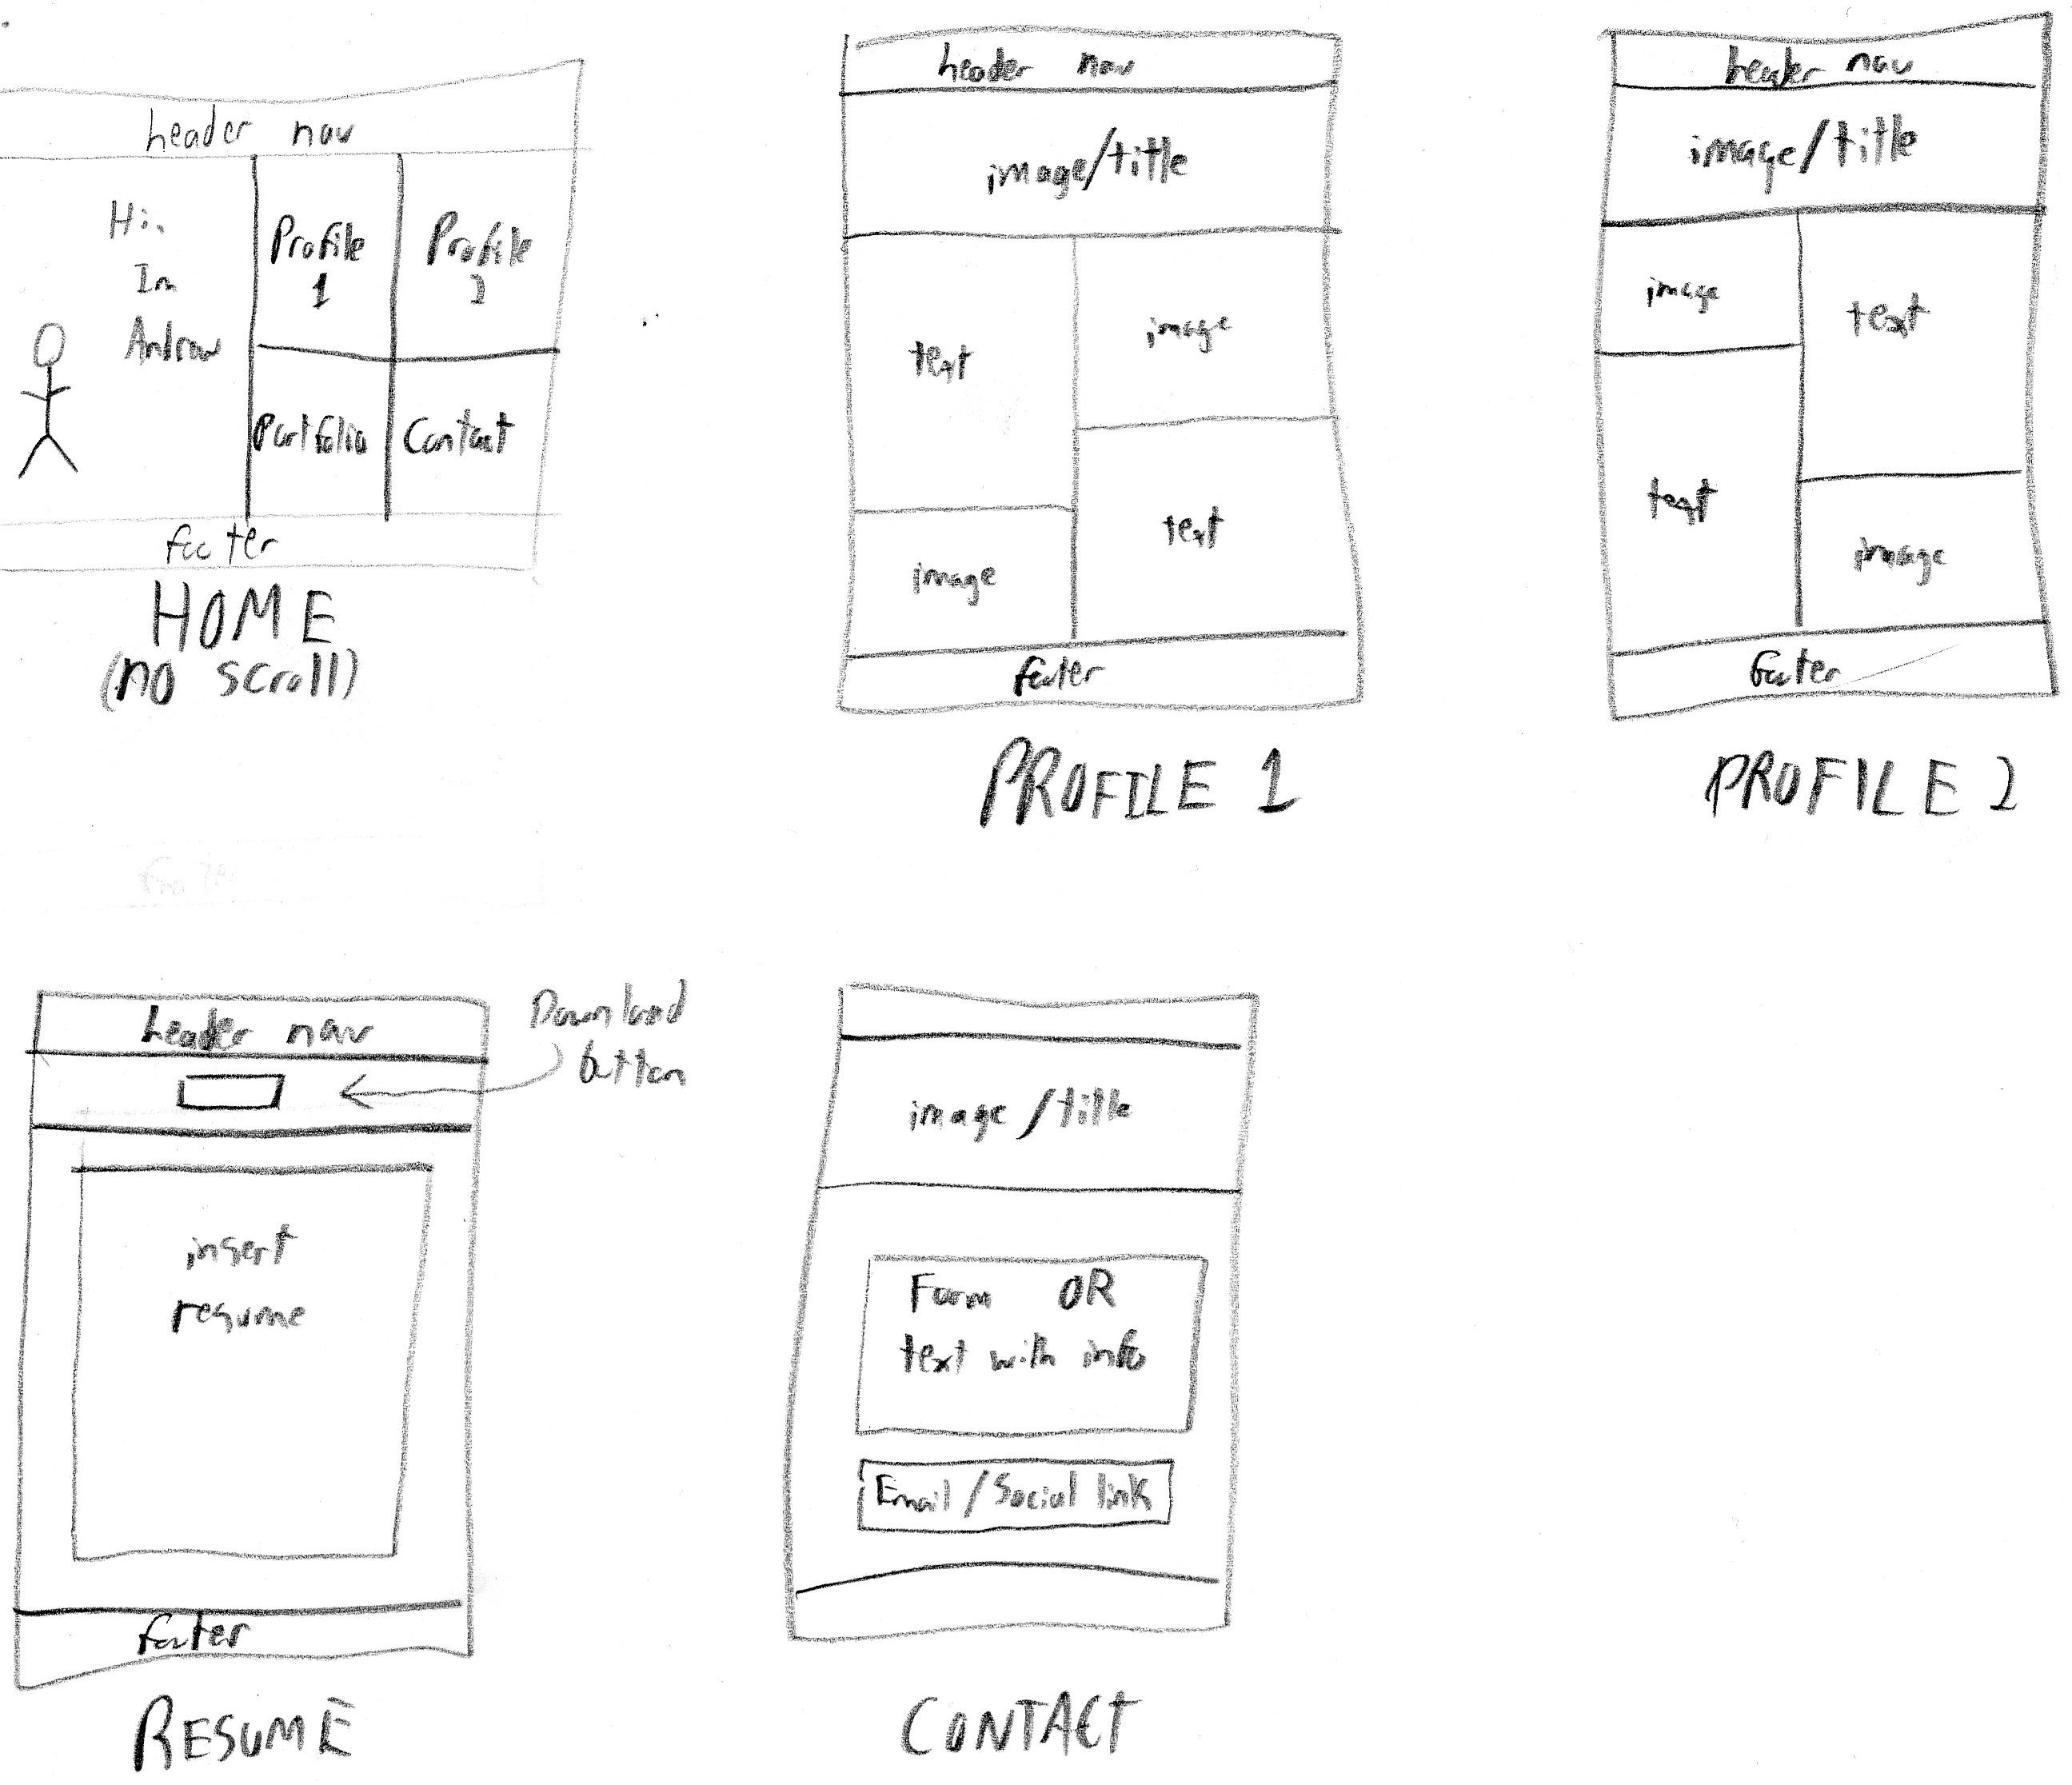 header nav
Hi,
Im
Andrew
Profile
1
Profile
2
Portfolio
Contact
footer
HOME
(no scroll)
header nav
image/title
text
image
image
text
footer
PROFILE 1
header nav
image/title
image
text
text
image
footer
PROFILE 2
header nav
Download
button
insert
resume
footer
RESUME
image/title
Form OR
text with info
Email/Social link
CONTACT